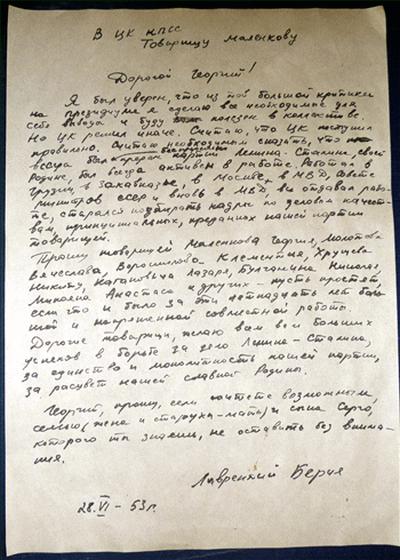 В ЦК КПСС
Товарищу Маленкову
Дорогой Георгий!
Я был уверен, что из той большой критики
на президиуме я сделаю все необходимые для
себя выводы и буду полезен в коллективе.
Но ЦК решил иначе. Считаю, что ЦК поступил
правильно. Считаю необходимым сказать, что
всегда был предан партии Ленина-Сталина, своей
Родине, был всегда активен в работе. Работая в
Грузии, в Закавказье, в Москве, в МВД, Совете
министров СССР и вновь в МВД, все отдавал рабо-
те, старался подбирать кадры по деловым качест-
вам, принципиальных, преданных нашей партии
товарищей.
Прошу товарищей Маленкова Георгия, Молотова
Вячеслава, Ворошилова Клементия, Хрущева
Никиту, Кагановича Лазаря, Булганина Николая,
Микояна Анастаса и других - пусть простят,
если что и было за эти пятнадцать лет боль-
шой и напряженной совместной работы.
Дорогие товарищи, желаю вам всем больших
успехов в борьбе за дело Ленина-Сталина,
за единство и монолитность нашей партии,
за расцвет нашей славной Родины.
Георгий, прошу, если сочтете возможным,
семью (жена и старуха-мать) и сына Серго,
которого ты знаешь, не оставить без внима-
ния.
Лаврентий Берия
28.VI - 53г.